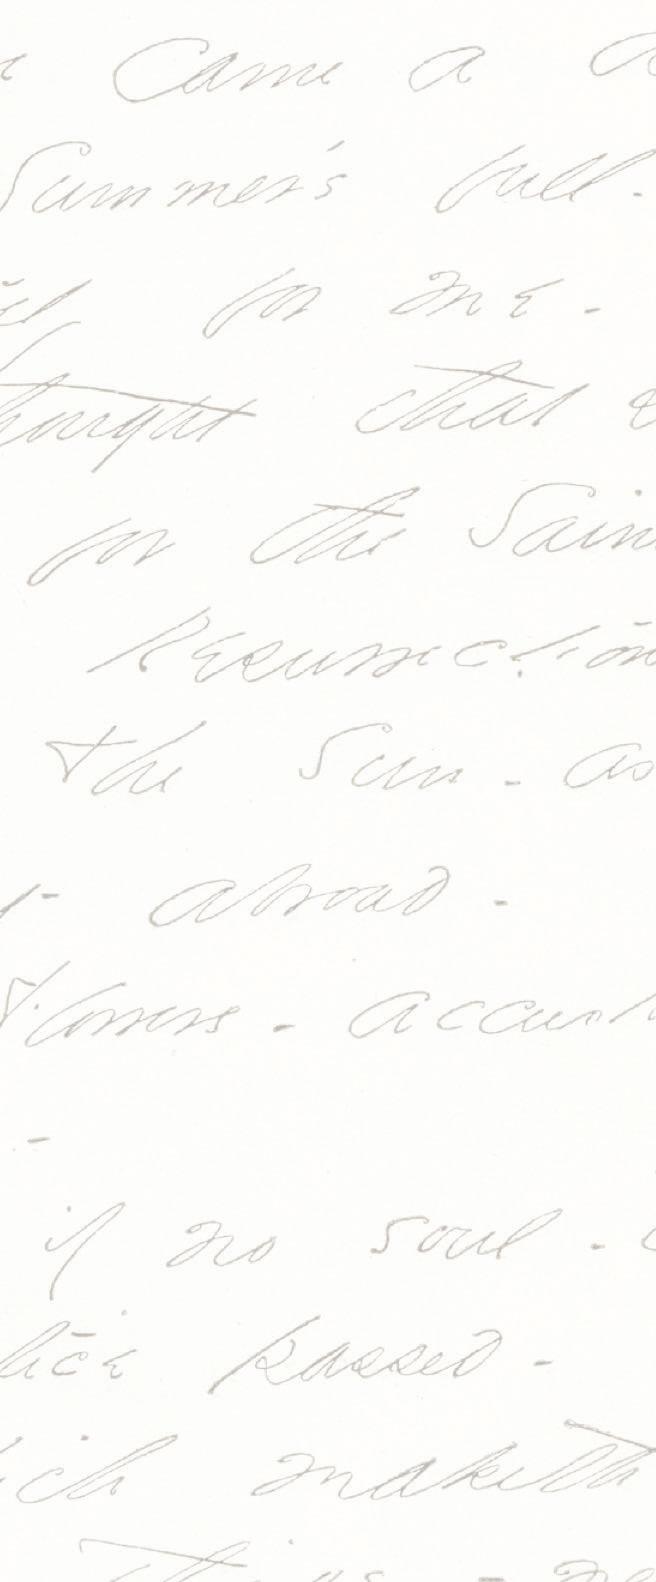 Came a
Summer's full -
for me -
thought that
for the Sain
Resurrection
the Sun - as
abroad -
flowers - accust
-
if no soul -
stice passed -
ich maketh